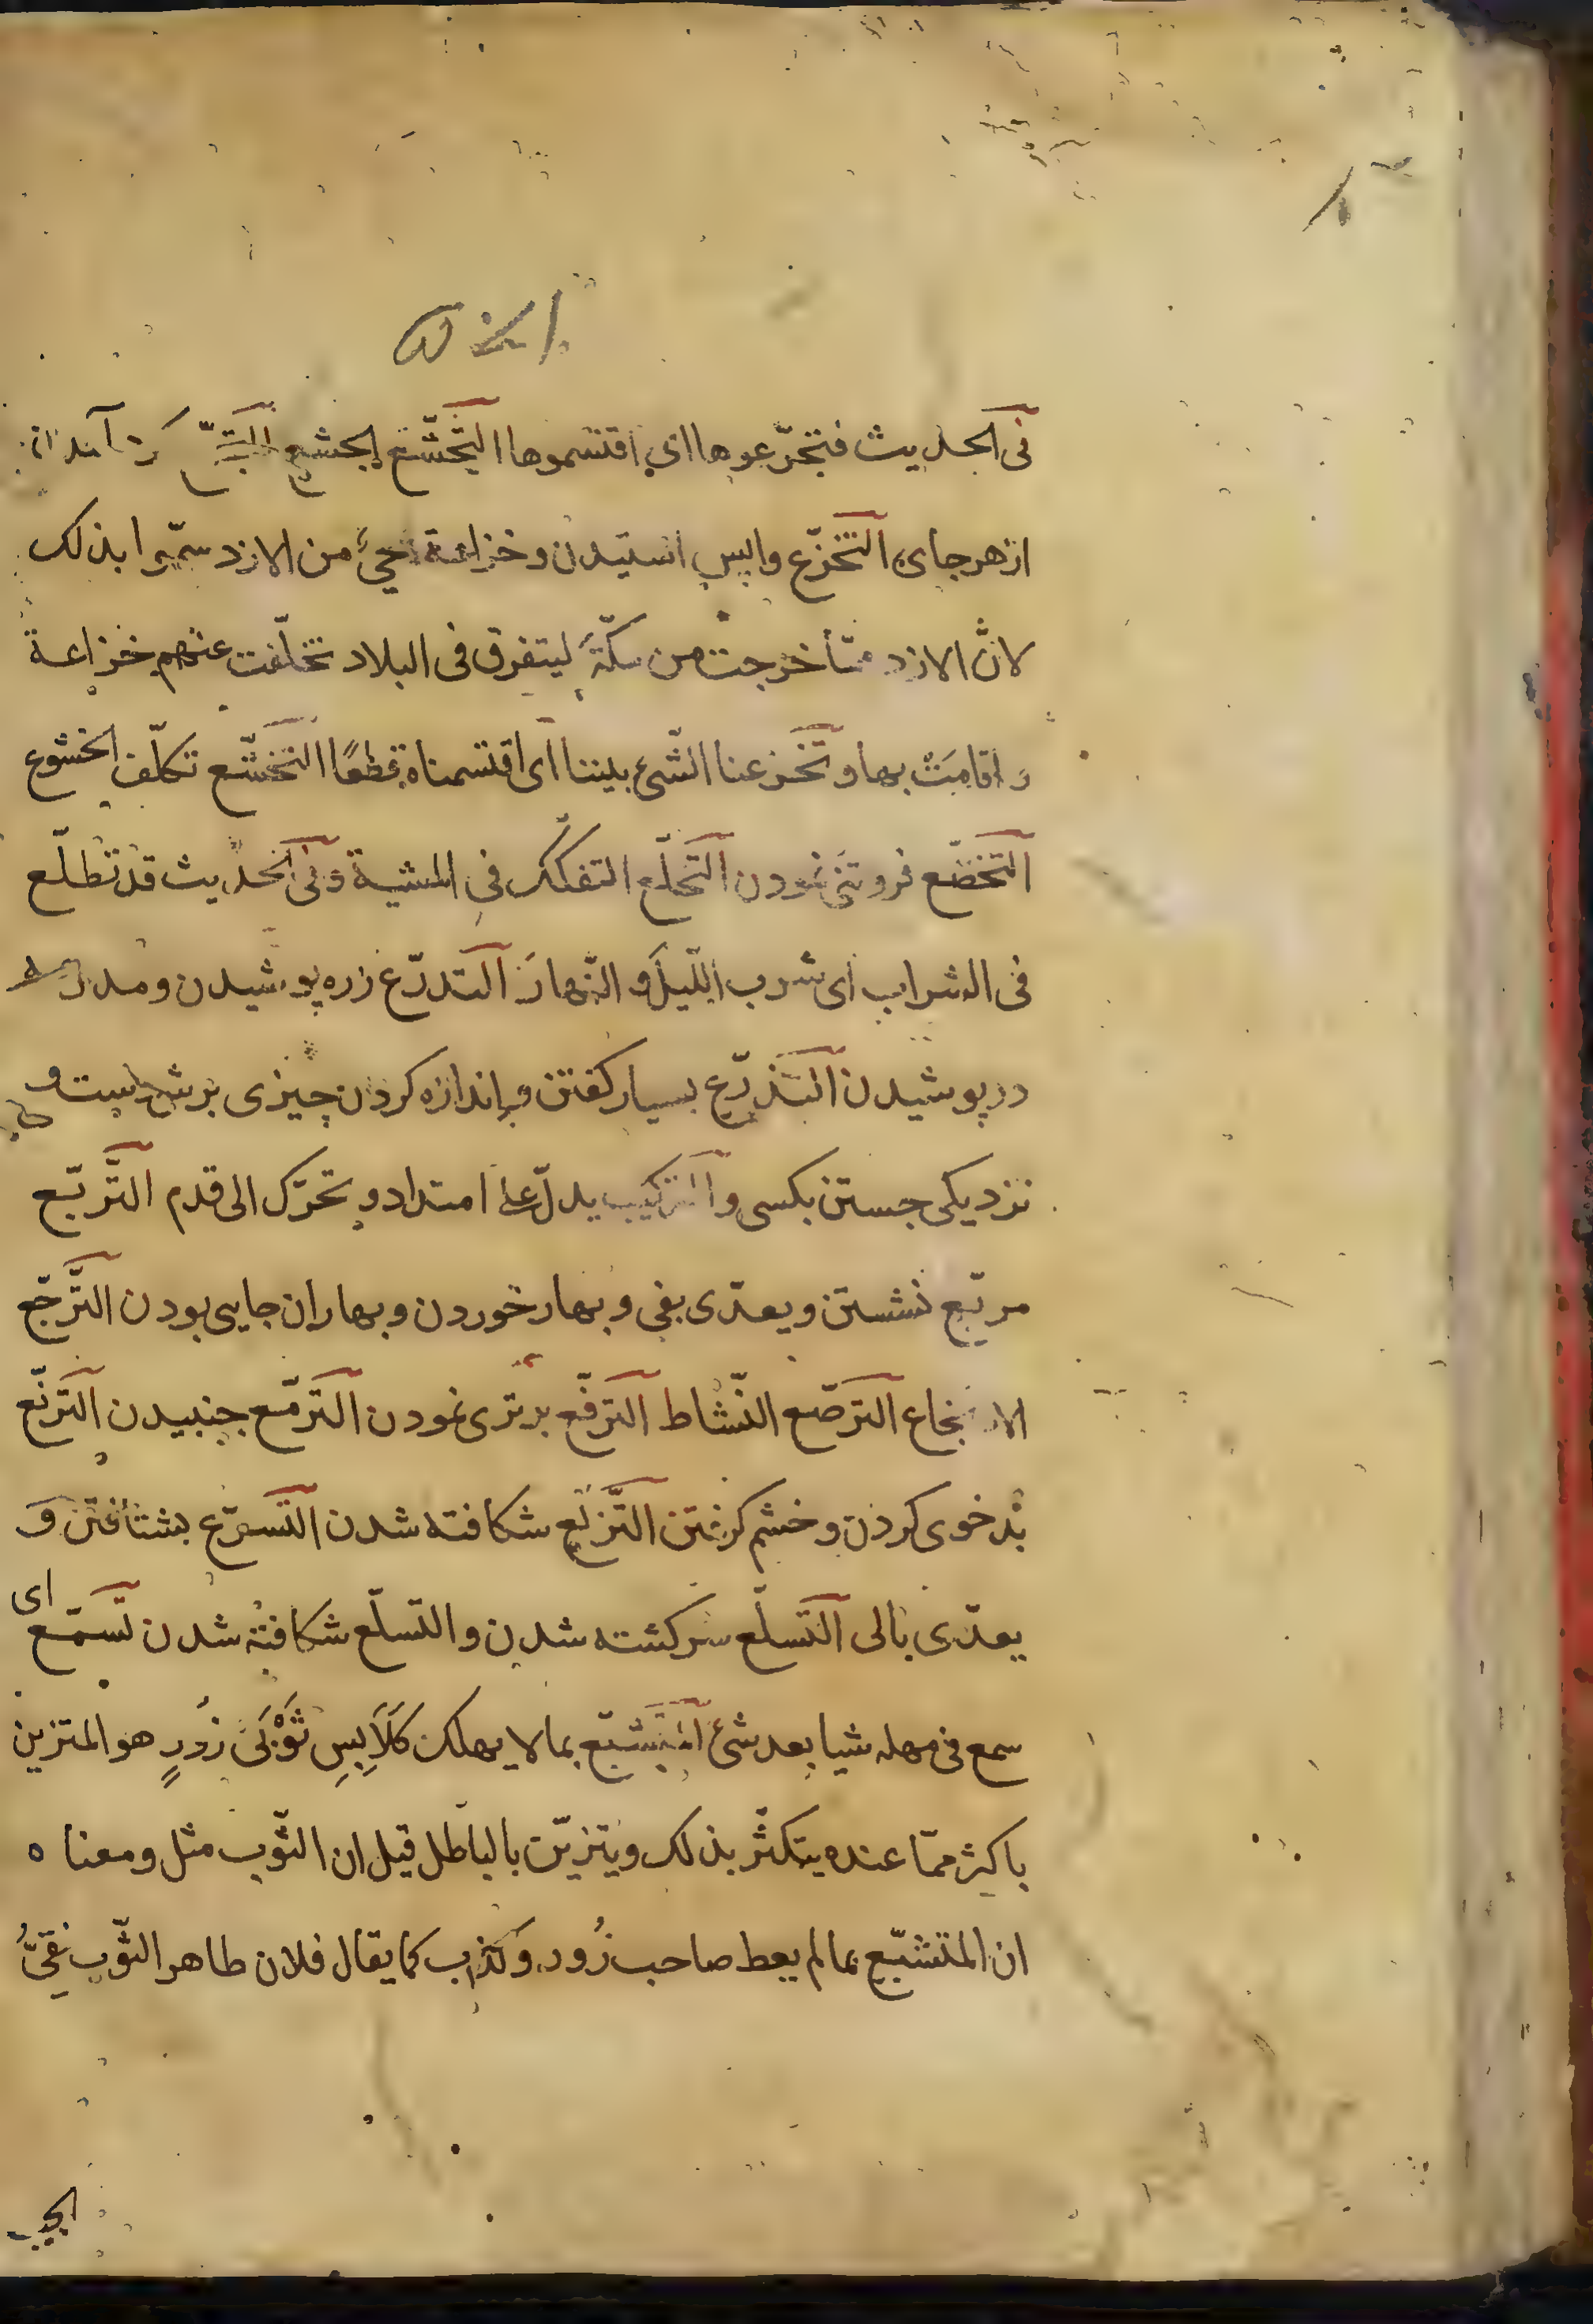 فی الحدیث فتجزّعوها ای اقتسموها التّجشّع الجشع التّجمّع کرد آمدن
از هر جای التّخزّع واپس استیدن و خزاعة حیّ من الازد سمّوا بذلک
لانّ الازد لمّا خرجت من مکّة لیتفرق فی البلاد تخلّفت عنهم خزاعة
و اقامت بها و تخزعنا الشّیء بیننا ای اقتسمناه قطعًا التّخشّع تکلّف الخشوع
التّخضّع فروتنی نمودن التّخلّع التفکک فی المشیة و فی الحدیث قد تخلّع
فی الشراب ای شرب اللّیل و النّهار التدرّع زره پوشیدن و مدرعه
در پوشیدن التذرّع بسیار کفتن و باندازه کردن چیزی برش دست و
نزدیکی جستن بکسی و الترکیب یدلّ علی امتداد و تحرّک الی قدم التّربّع
مربّع نشستن و یعدّی بفی و بهار خوردن و بهاران جایی بودن التّرجّع
الارتجاع الترصّع النّشاط الترفّع برتری نمودن الترمّع جنبیدن الترنّع
بدخوی کردن و خشم کرفتن التّزلّع شکافته شدن التّسرّع بشتافتن و
یعدّی بالی التّسلّع سرکشته شدن و التسلّع شکافته شدن تسمّع ای
سمع فی مهله شیا بعد شیٔ المتشبّع بما لا یهلک کلابس ثوبی زور هو المتزین
باکثر ممّا عنده یتکثّر بذلک و یتزیّن بالباطل قیل ان الثّوب مثل و معناه
ان المتشبّع بما لم یعط صاحب زُور و کذب کما یقال فلان طاهر الثّوب نقیّ
الجیب